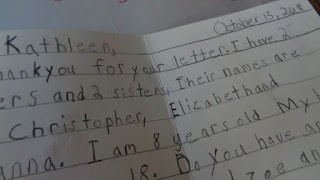 October 13, 201
Kathleen,
hankyou for your letters I have 2
ers and 2 sisters, Their names are
Christopher, Elizabethand
anna. I am 8 years old My b
18. Do you have an
zoe an